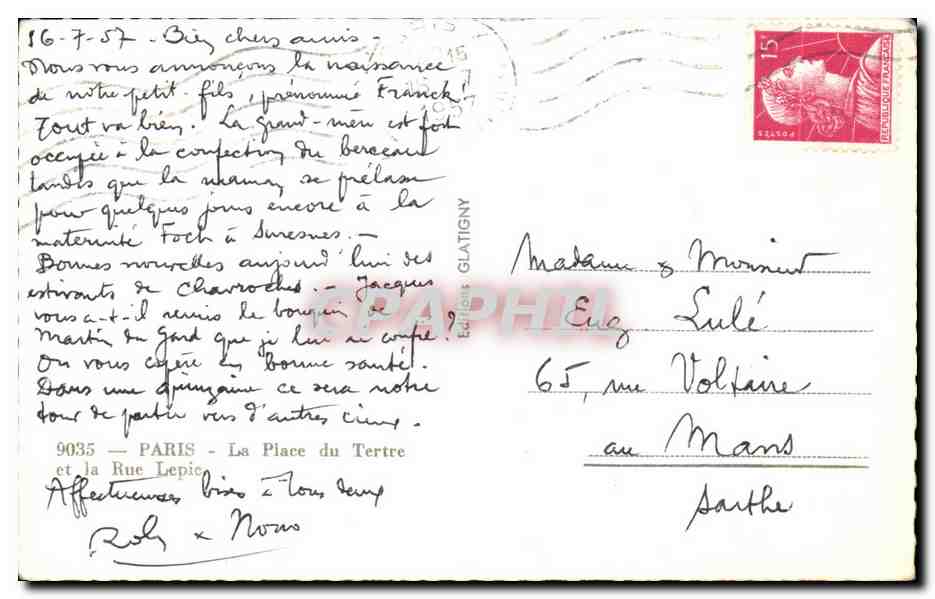 16-7-57 - Bien chers amis -
Nous vous annonçons la naissance
de notre petit-fils, prénommé Franck!
Tout va bien. La grand-mère est fort
occupée à la confection du berceau
tandis que la maman se prélasse
pour quelques jours encore à la
maternité Foch à Suresnes. -
Bonnes nouvelles aujourd'hui des
estivants de Chavroches. - Jacques
vous a-t-il remis le bouquin de
Martin du Gard que je lui ai confié?
On vous espère en bonne santé.
Dans une quinzaine ce sera notre
tour de partir vers d'autres cieux.
9035 — PARIS - La Place du Tertre
et la Rue Lepic
Affectueuses bises à tous deux
Roby x Nono
Editions GLATIGNY
CPAPHIL
15F
POSTES
REPUBLIQUE FRANÇAISE
Madame & Monsieur
Eug. Lulé
65, rue Voltaire
au Mans
Sarthe